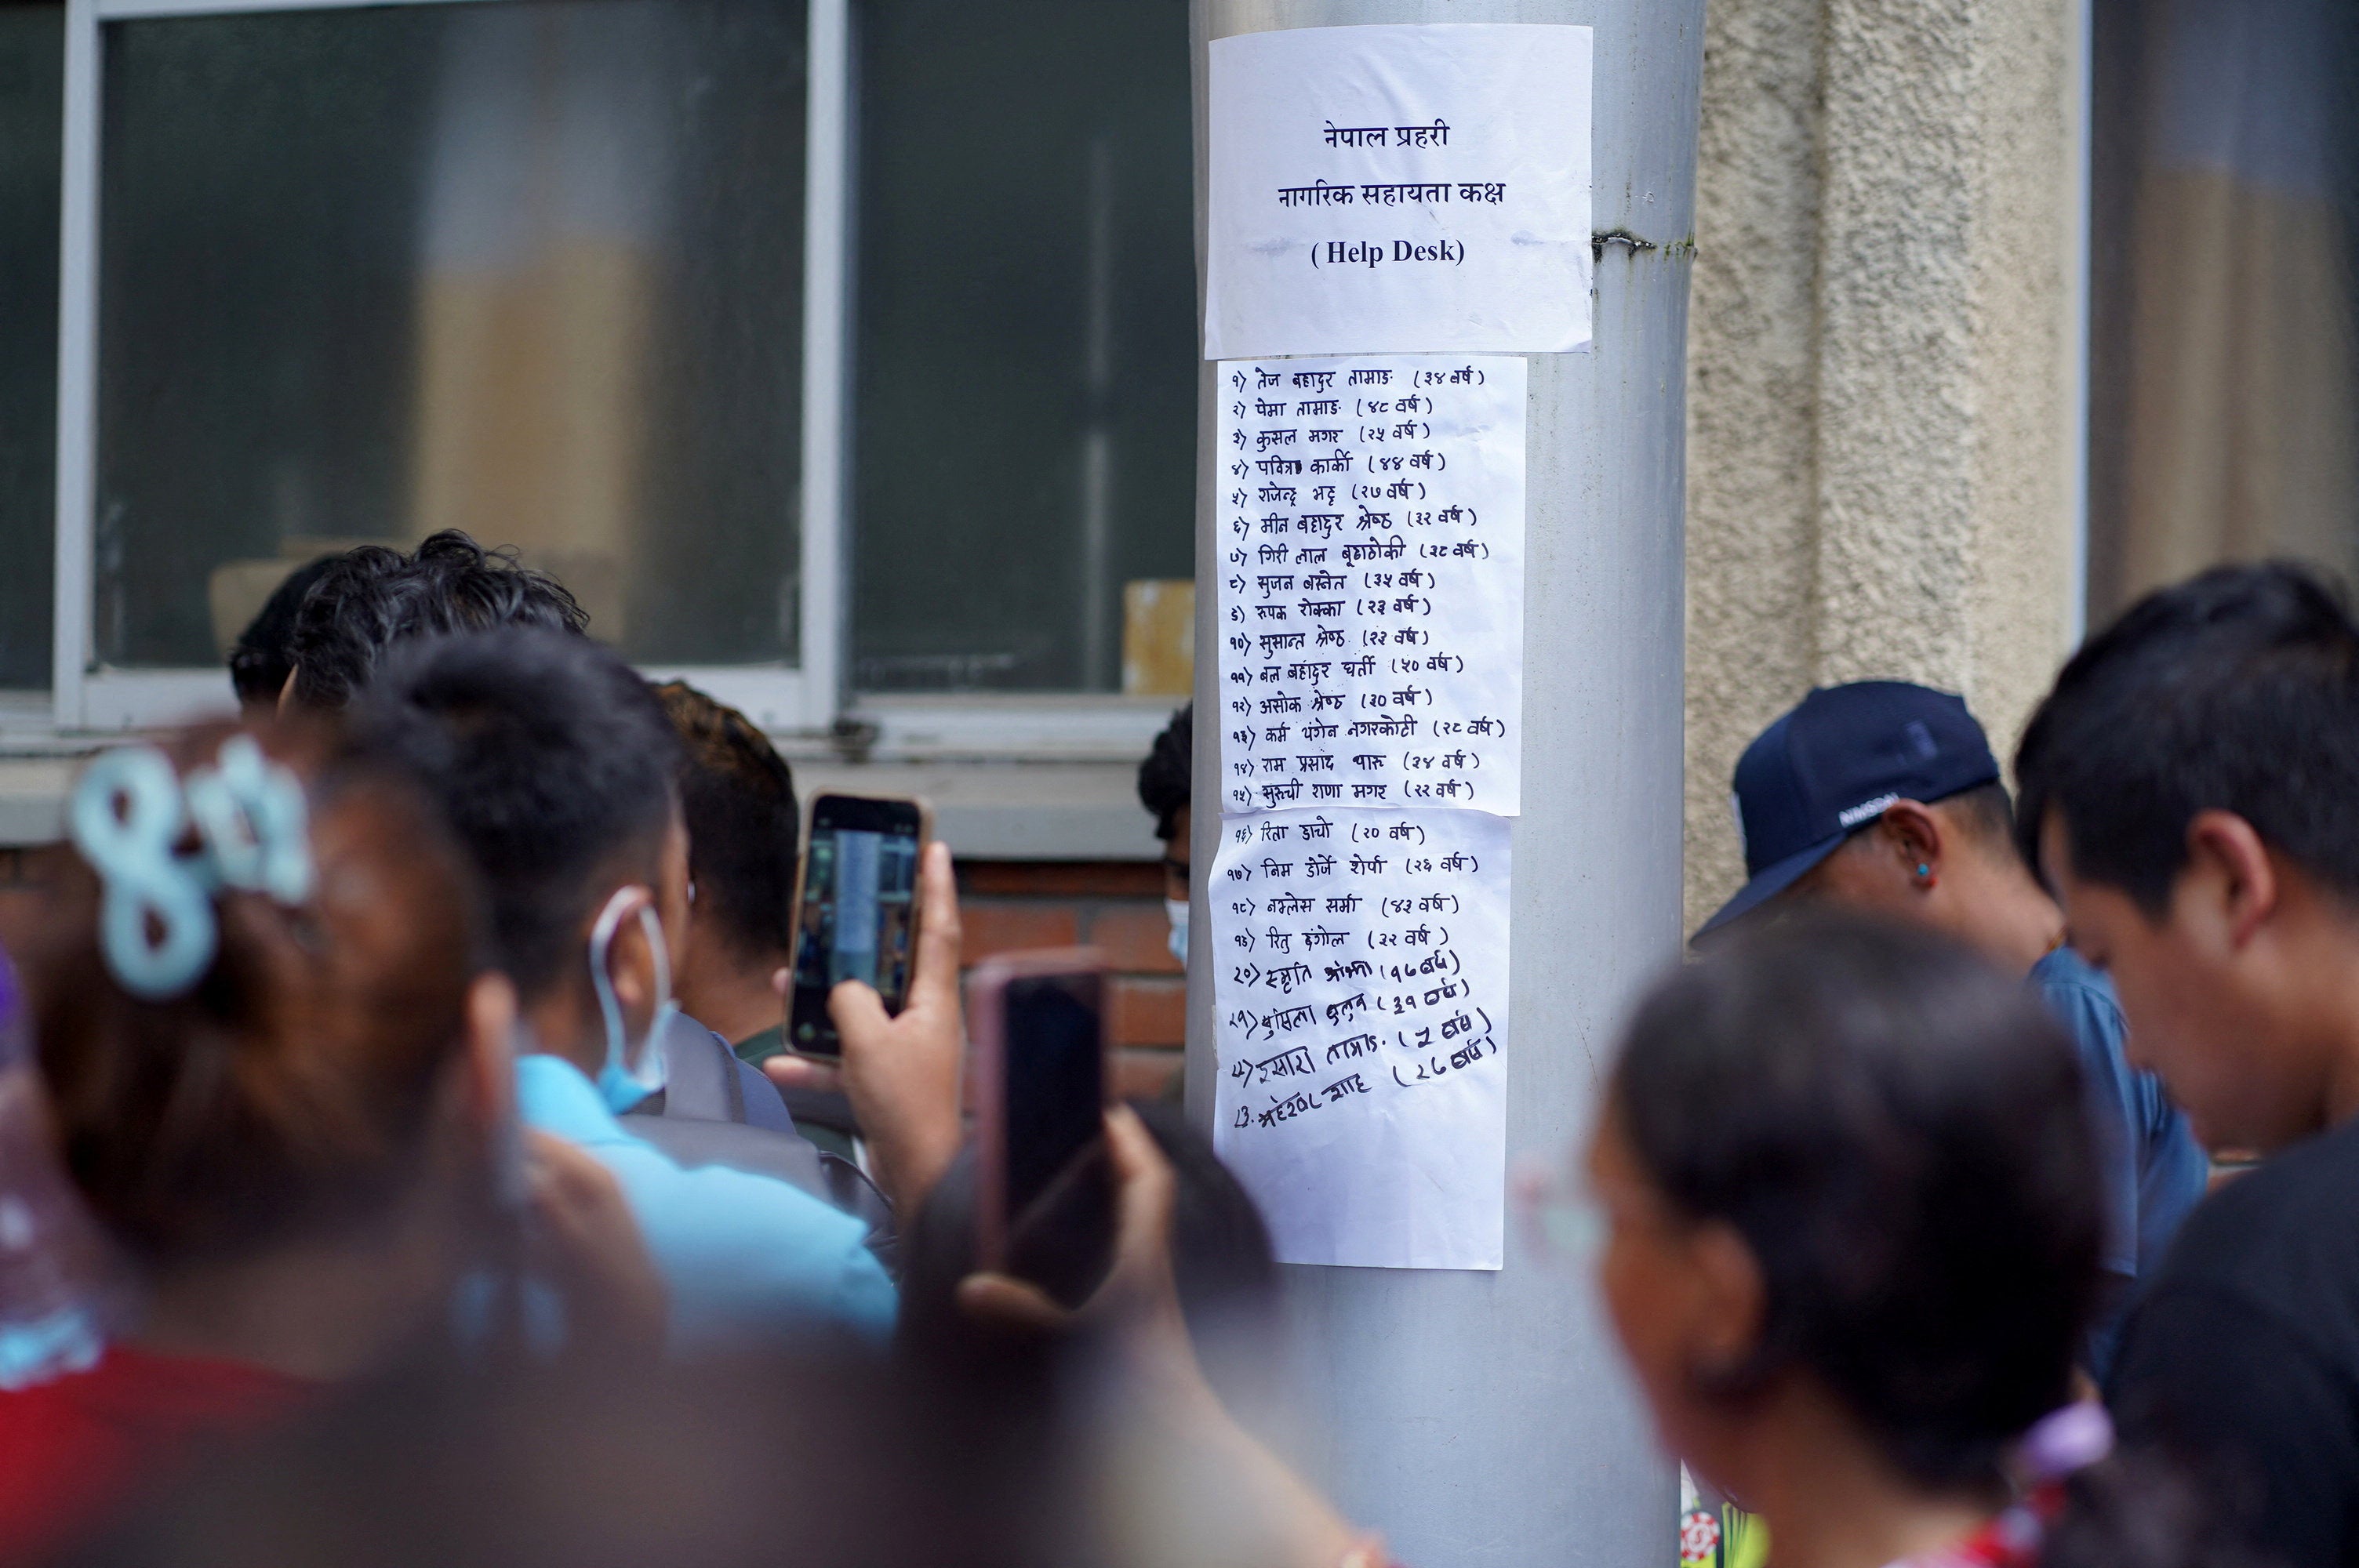 नेपाल प्रहरी
नागरिक सहायता कक्ष
( Help Desk)
१) तेज बहादुर तामाङ (३४ वर्ष)
२) पेमा तामाङ (४८ वर्ष)
३) कुसल मगर (२५ वर्ष)
४) पवित्रा कार्की (४४ वर्ष)
५) राजेन्द्र भट्ट (२७ वर्ष)
६) मीन बहादुर श्रेष्ठ (३२ वर्ष)
७) गिरी लाल बूढाठोकी (३८ वर्ष)
८) सुजन बस्नेत (३५ वर्ष)
९) रुपक रोक्का (२३ वर्ष)
१०) सुसान्त श्रेष्ठ (२३ वर्ष)
११) बल बहादुर घर्ती (५० वर्ष)
१२) असोक श्रेष्ठ (३० वर्ष)
१३) कर्म थंगेन नगरकोटी (२८ वर्ष)
१४) राम प्रसाद थारु (३४ वर्ष)
१५) सुरुची राणा मगर (२२ वर्ष)
१६) रिता डाचो (२० वर्ष)
१७) निम डोर्जे शेर्पा (२६ वर्ष)
१८) नम्लेस सर्मा (४३ वर्ष)
१९) रितु डंगोल (३२ वर्ष)
२०) स्मृति (१७ वर्ष)
२१) (३१ वर्ष)
तामाङ (वर्ष)
शाह (२८ वर्ष)